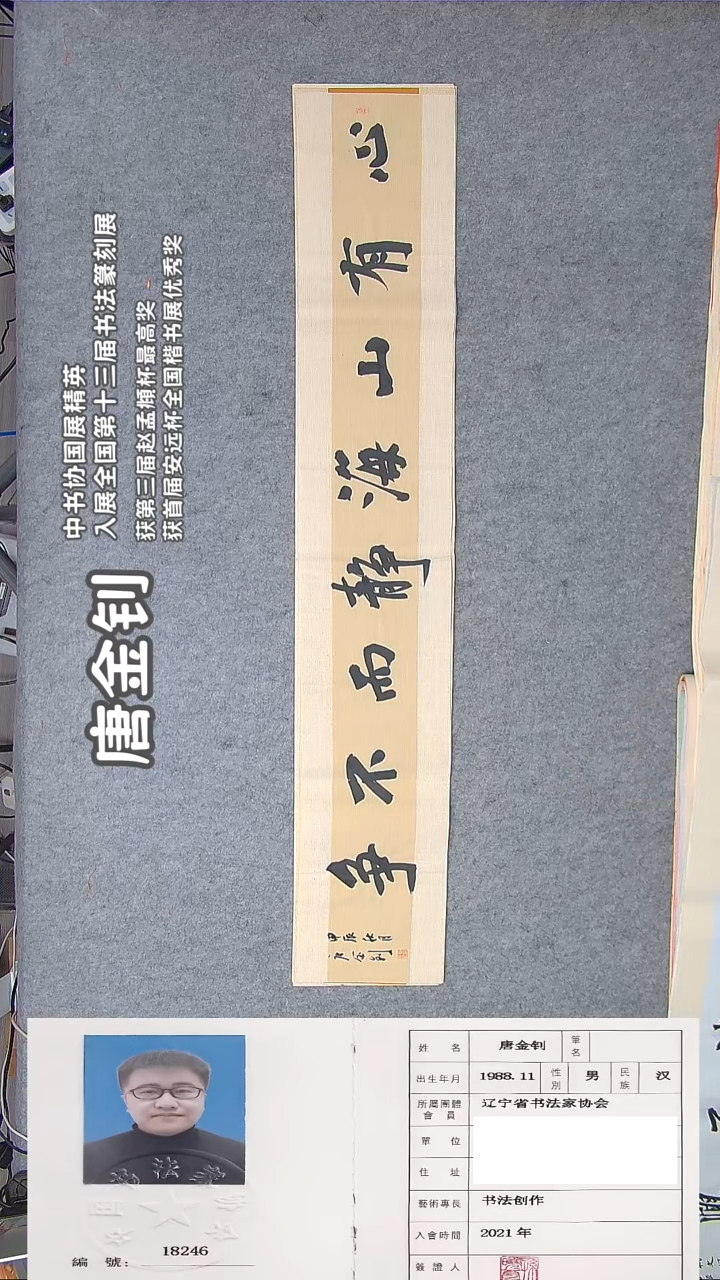 中书协国展精英
入展全国第十三届书法篆刻展
获第三届赵孟頫杯最高奖
获首届安远杯全国楷书展优秀奖
唐金钊
心有山海静而不争
甲辰
唐金钊
編 號: 18246
姓 名 唐金钊 筆名
出生年月 1988.11 性別 男 民族 汉
所屬團體會員 辽宁省书法家协会
單 位
住 址
藝術專長 书法创作
入會時間 2021年
簽證人